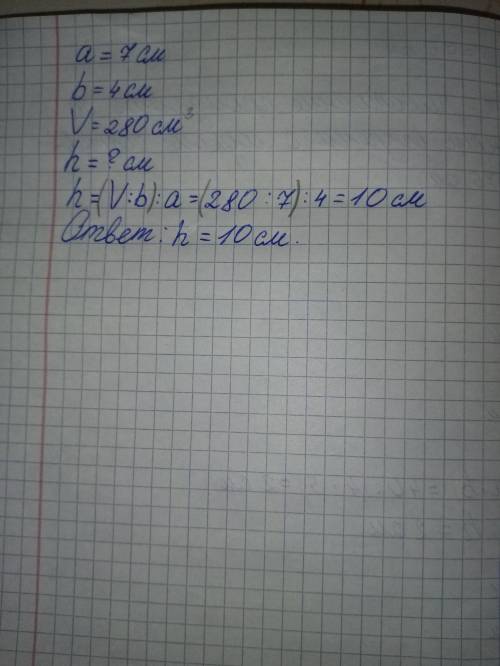 a = 7 см
b = 4 см
V = 280 см³
h = ? см
h = (V:b):a = (280:7):4 = 10 см
Ответ: h = 10 см.